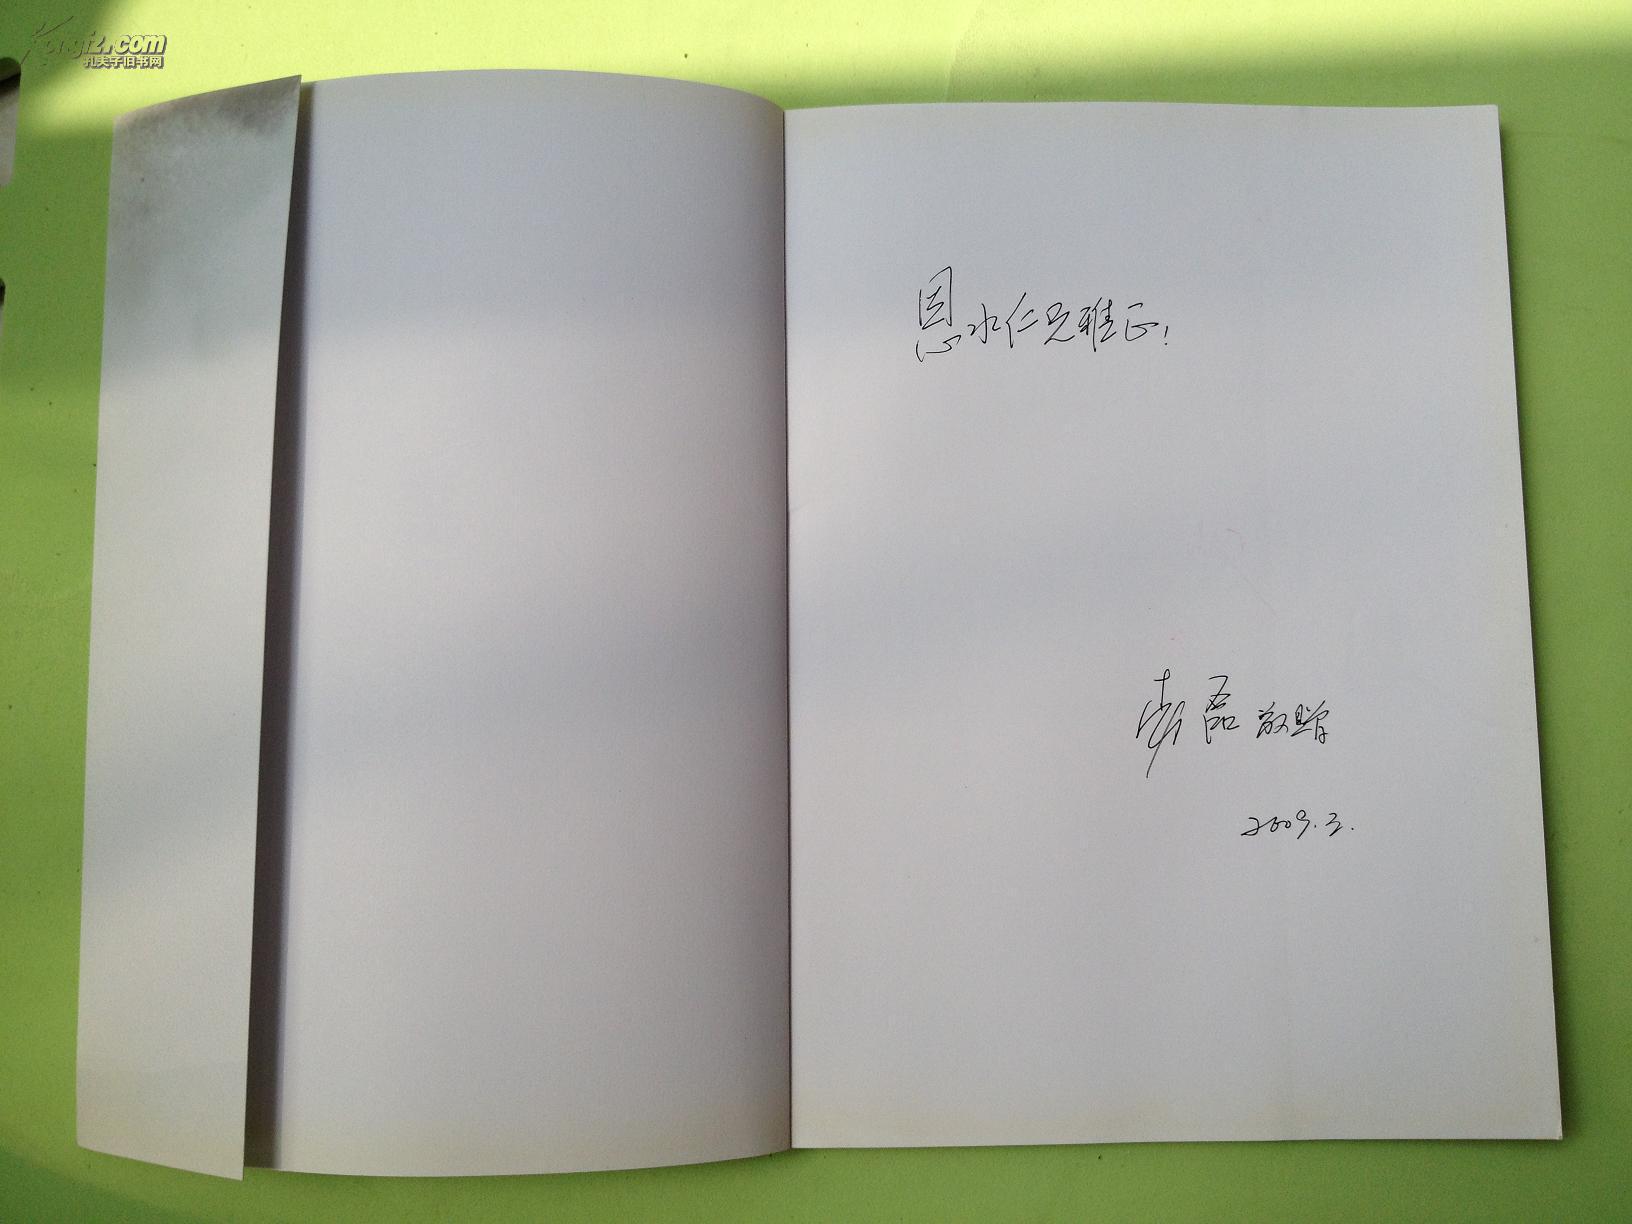 Kongfz.com
孔夫子旧书网
恩水仁兄雅正!
磊 敬赠
2009.3.